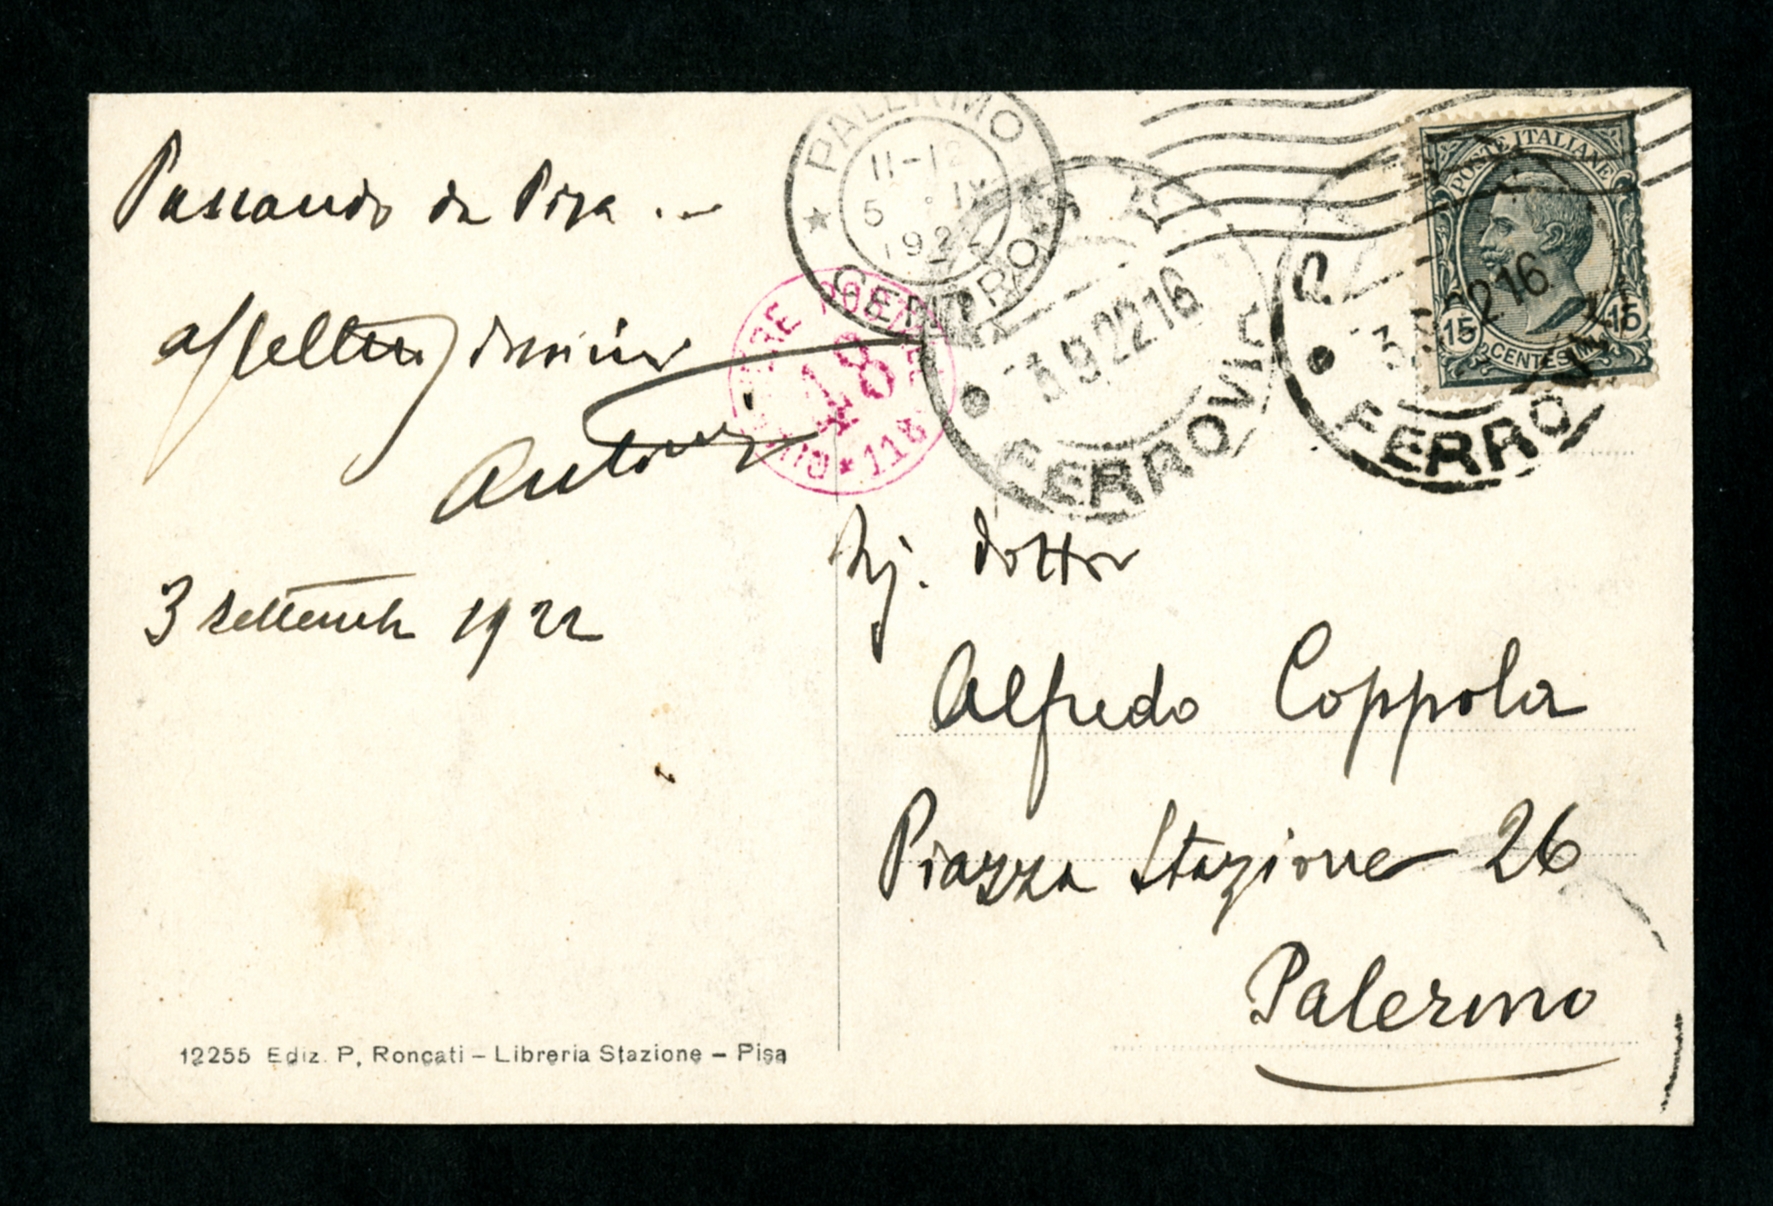 Passando da Pisa ...
Antonio
3 settembre 1922
PALERMO
11-12
5 . IX
192
CENTRO
3.9.22 16
FERROVIA
3.9.22 16
FERROVIA
POSTE ITALIANE
15 15
CENTESIMI
18
* 118
Sig. Dottor
Alfredo Coppola
Piazza Stazione 26
Palermo
12255 Ediz. P. Roncati – Libreria Stazione – Pisa